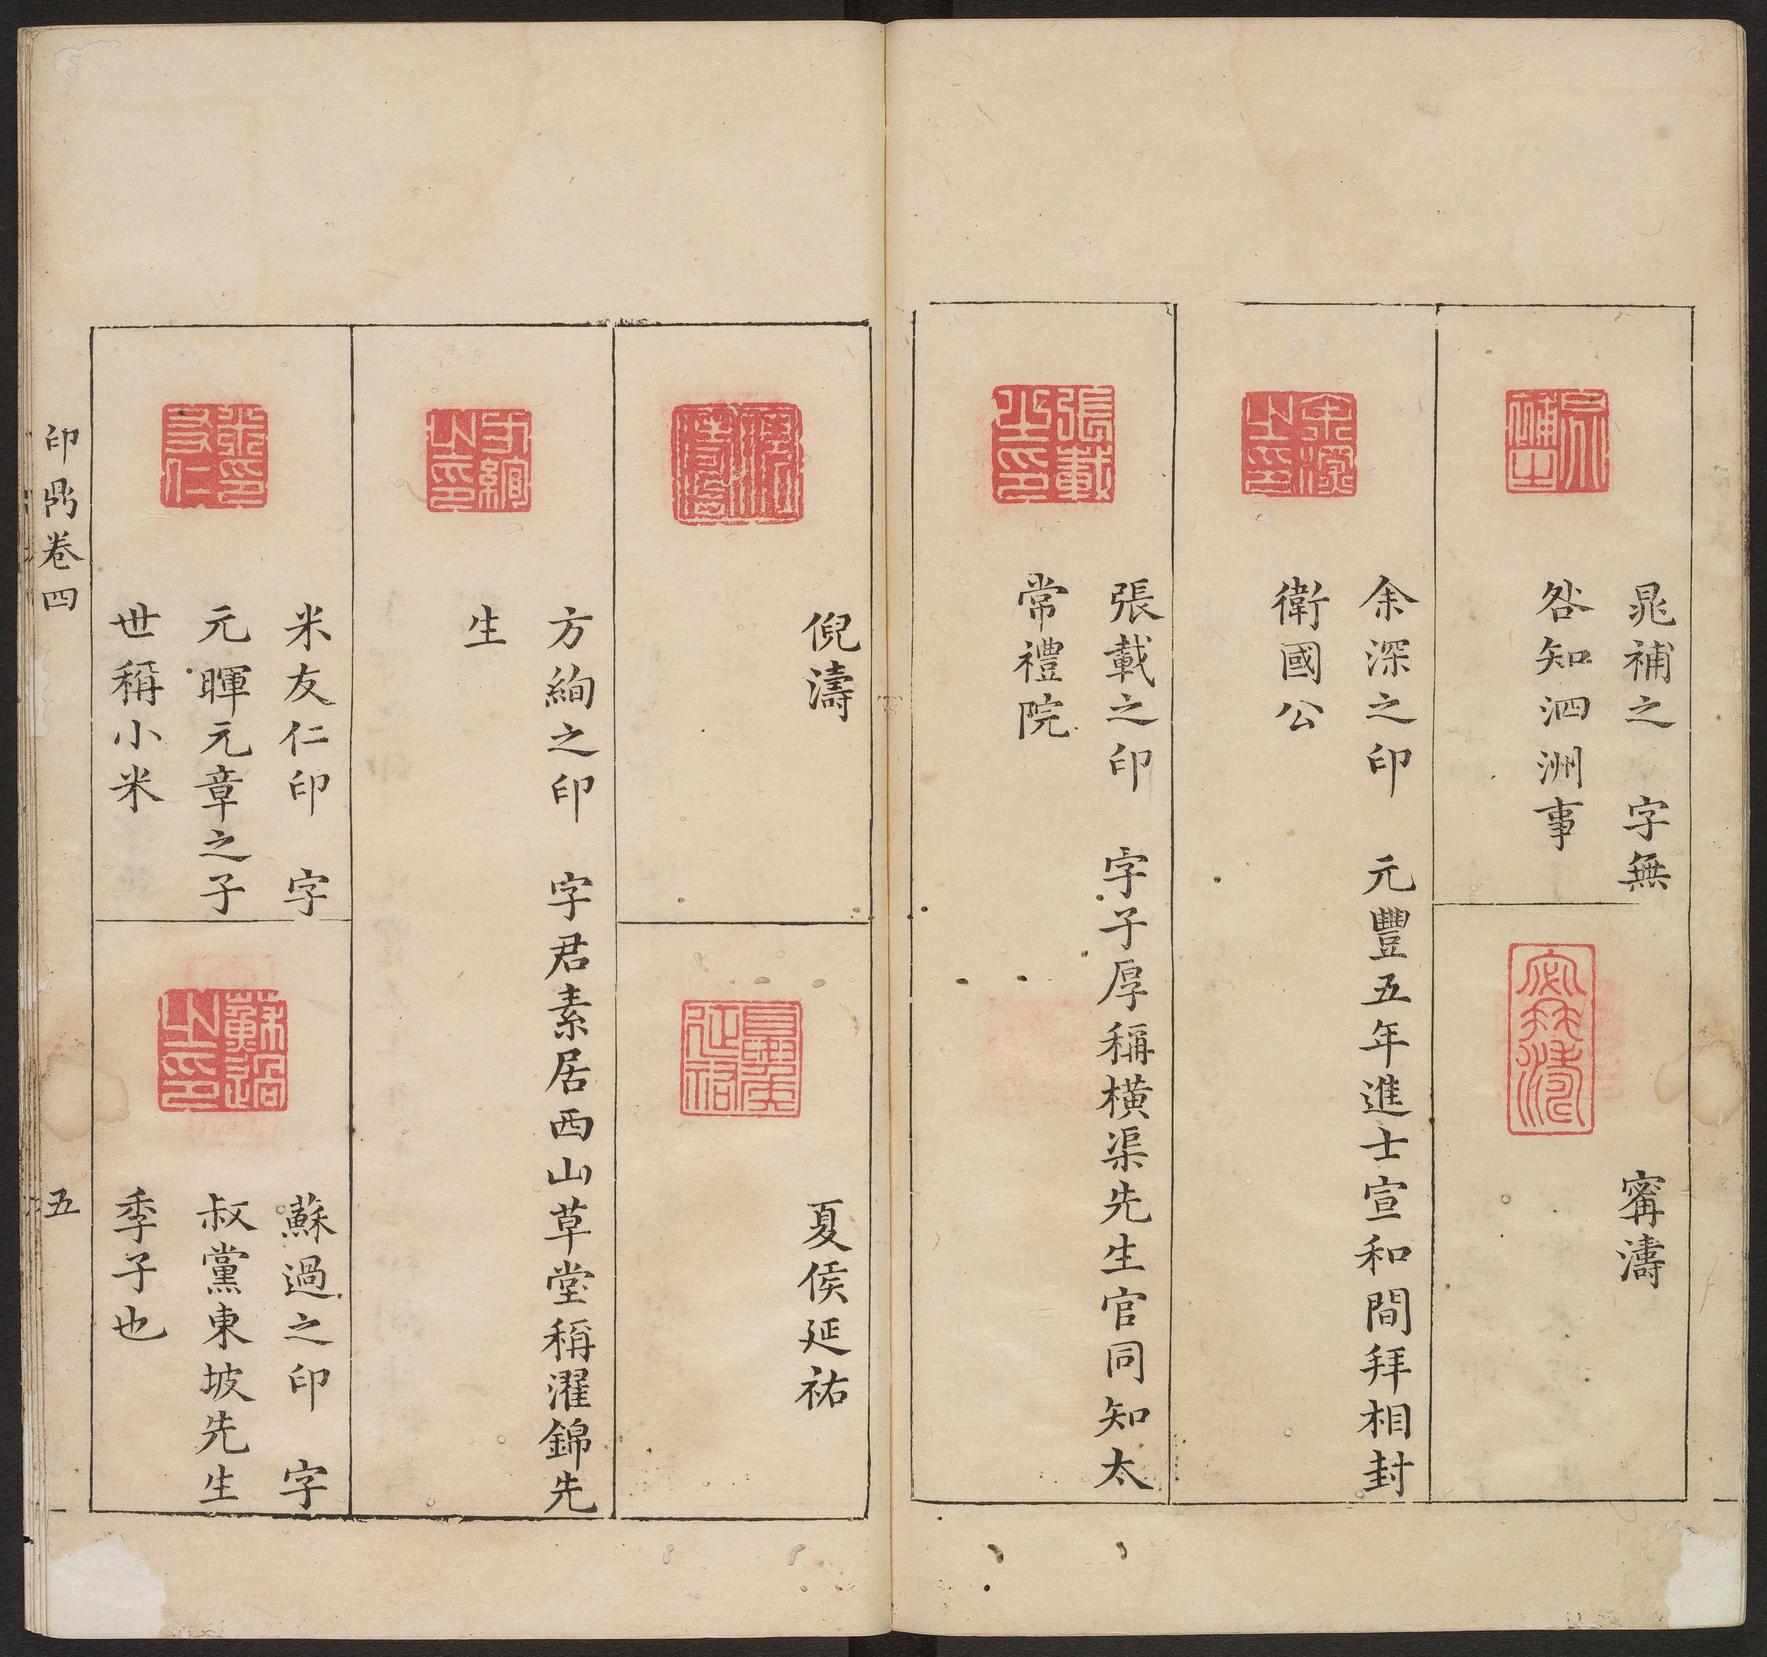 晁補之　字無
咎知泗洲事
甯濤
余深之印　元豐五年進士宣和間拜相封
衛國公
張載之印　字子厚稱橫渠先生官同知太
常禮院
倪濤
夏侯延祐
方絢之印　字君素居西山草堂稱濯錦先
生
米友仁印　字
元暉元章之子
世稱小米
蘇過之印　字
叔黨東坡先生
季子也
印鼎卷四
五